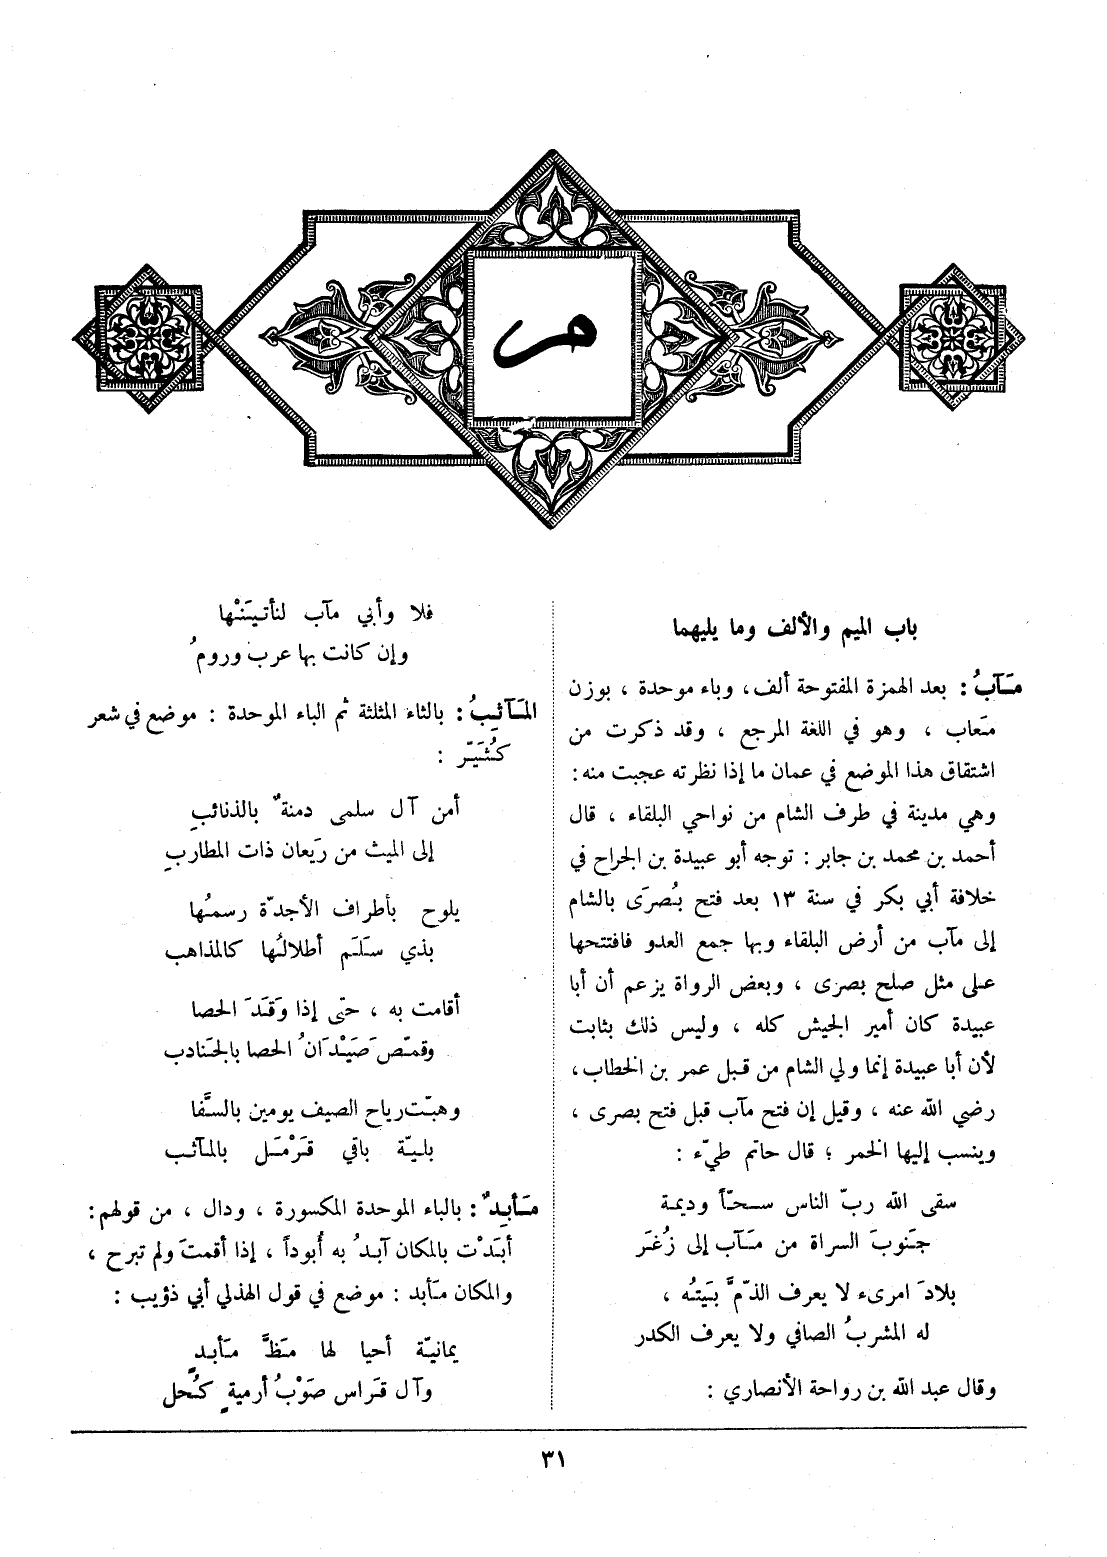 م
باب الميم والألف وما يليهما
مَآبُ : بعد الهمزة المفتوحة ألف ، وباء موحدة ، بوزن
مَعاب ، وهو في اللغة المرجع ، وقد ذكرت من
اشتقاق هذا الموضع في عمان ما إذا نظرته عجبت منه :
وهي مدينة في طرف الشام من نواحي البلقاء ، قال
أحمد بن محمد بن جابر : توجه أبو عبيدة بن الجراح في
خلافة أبي بكر في سنة ١٣ بعد فتح بُصرَى بالشام
إلى مآب من أرض البلقاء وبها جمع العدو فافتتحها
على مثل صلح بصرى ، وبعض الرواة يزعم أن أبا
عبيدة كان أمير الجيش كله ، وليس ذلك بثابت
لأن أبا عبيدة إنما ولي الشام من قبل عمر بن الخطاب ،
رضي الله عنه ، وقيل إن فتح مآب قبل فتح بصرى ،
وينسب إليها الخمر ؛ قال حاتم طيّء :
سقى الله ربّ الناس سحّاً وديمة
جَنوبَ السراة من مَآب إلى زُغَرَ
بلادَ امرىء لا يعرف الذمَّ بَيتُه ،
له المشربُ الصافي ولا يعرف الكدر
وقال عبد الله بن رواحة الأنصاري :
فلا وأبي مآب لنأتيَنْها
وإن كانت بها عرب ورومُ
المَآثِبُ : بالثاء المثلثة ثم الباء الموحدة : موضع في شعر
كُثَيّر :
أمن آل سلمى دمنةٌ بالذنائبِ
إلى الميث من رَيعان ذات المطاربِ
يلوح بأطراف الأجدّة رسمُها
بذي سَلَم أطلالُها كالمذاهب
أقامت به ، حتى إذا وَقَدَ الحصا
وقمّص صَيْدَانُ الحصا بالجَنادب
وهبّت رياح الصيف يومين بالسَّفا
بليّة باقي قَرْمَل بالمآثب
مَأبِدٌ : بالباء الموحدة المكسورة ، ودال ، من قولهم :
أبَدْت بالمكان آبدُ به أُبوداً ، إذا أقمتَ ولم تبرح ،
والمكان مَأبد : موضع في قول الهذلي أبي ذؤيب :
يمانيّة أحيا لها مَظَّ مَأبدٍ
وآل قَراس صَوْبُ أرمِيةٍ كُحل
٣١